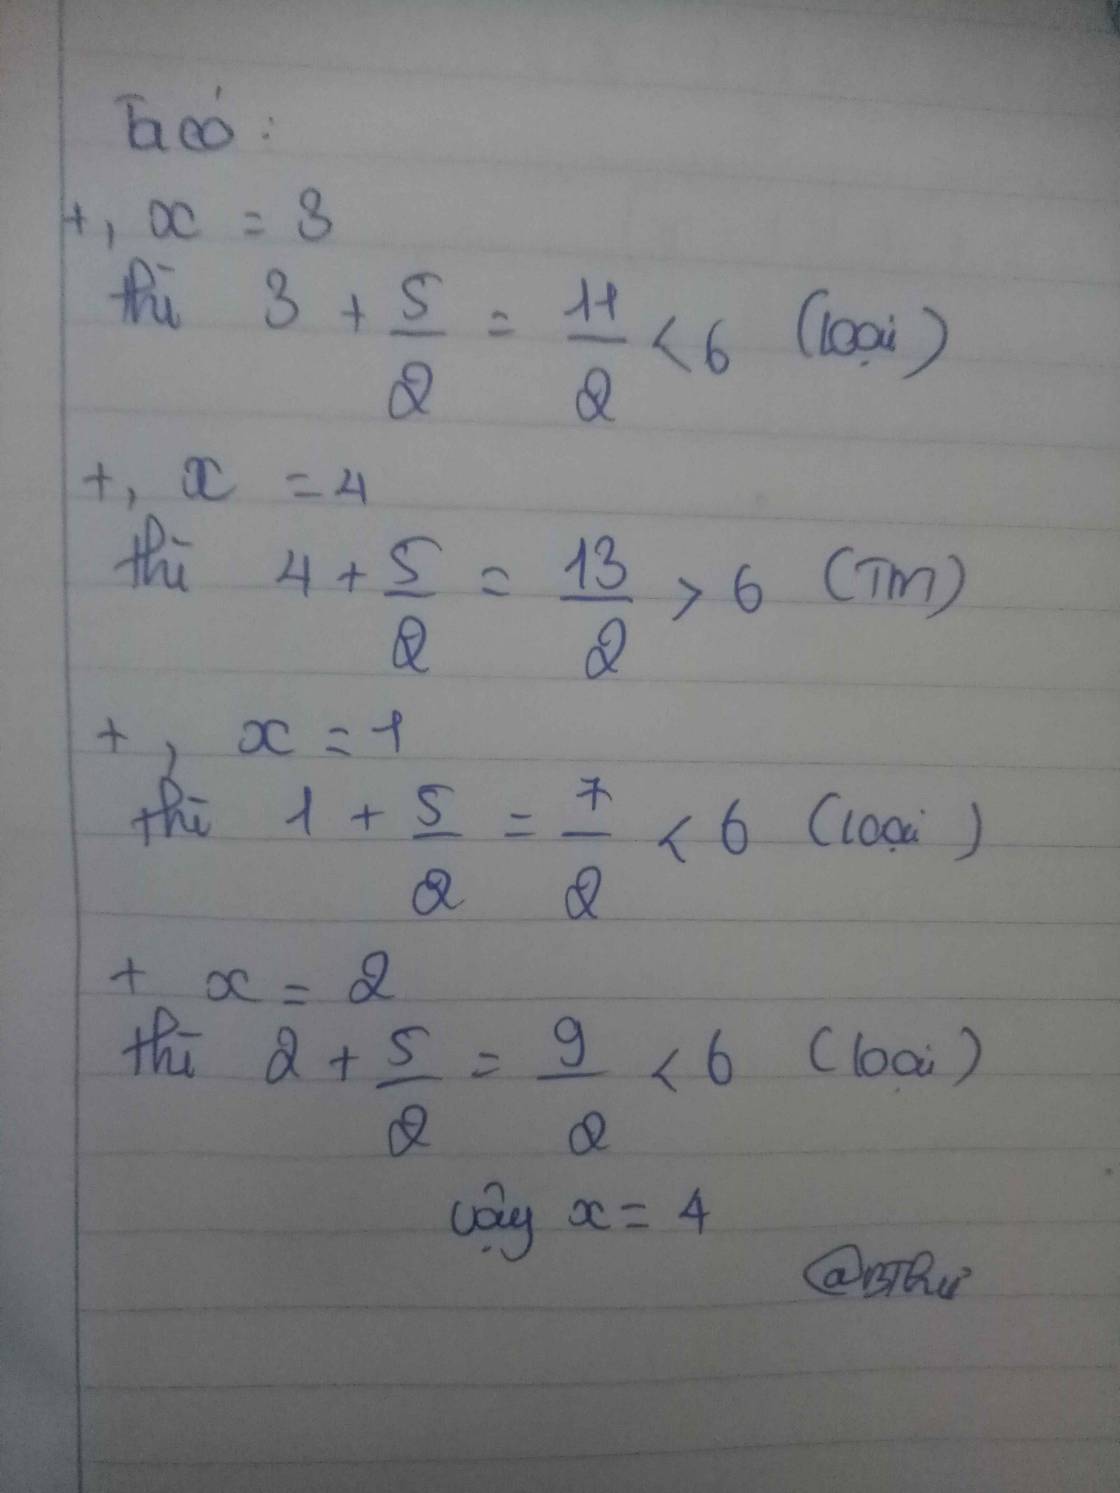 Ta có :
+, x = 3
thì 3 + 5/2 = 11/2 < 6 (loại)
+, x = 4
thì 4 + 5/2 = 13/2 > 6 (TM)
+, x = 1
thì 1 + 5/2 = 7/2 < 6 (loại)
+ x = 2
thì 2 + 5/2 = 9/2 < 6 (loại)
vậy x = 4
@BThư